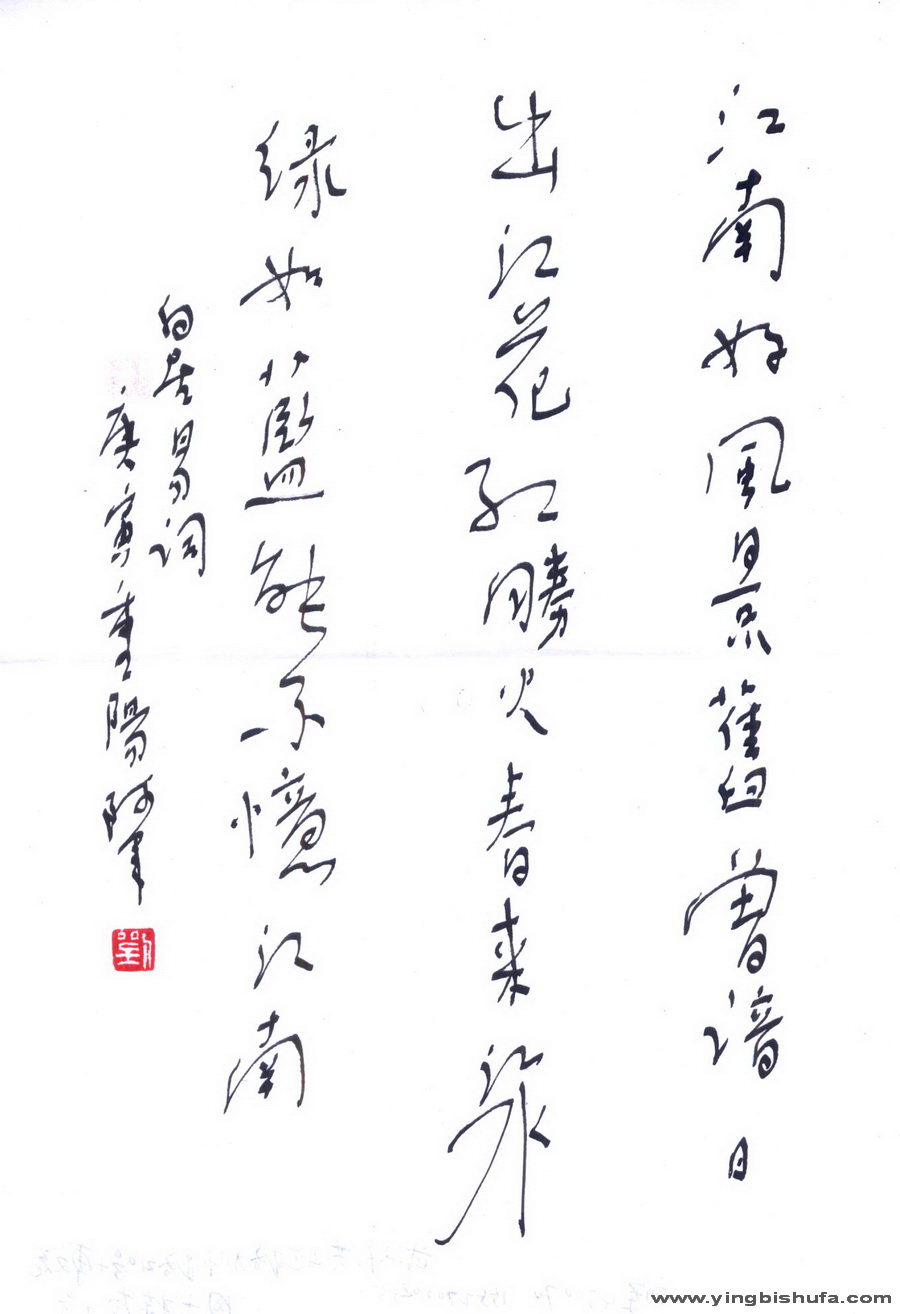 江南好風景舊曾諳日
出江花红勝火春来江水
绿如藍能不憶江南
白居易词
庚寅重陽
劉
www.yingbishufa.com